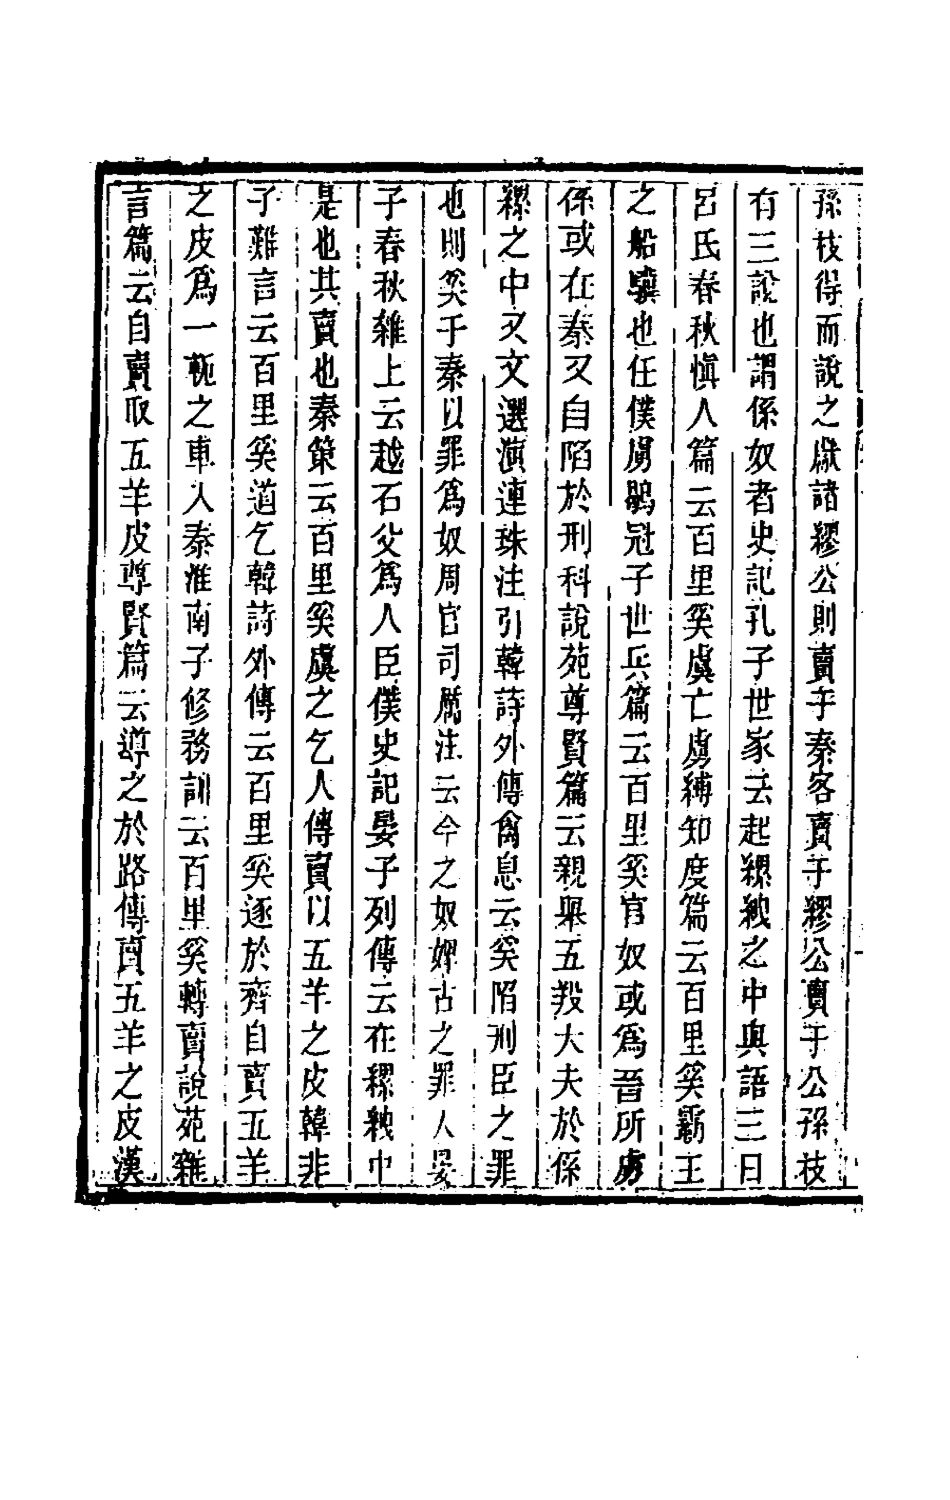 孫枝得而說之獻諸繆公則賣于秦客賣于繆公賣于公孫枝
有三說也謂係奴者史記孔子世家云起纍紲之中與語三日
呂氏春秋愼人篇云百里奚虞亡虜縛知度篇云百里奚霸王
之船驥也任僕虜鶡冠子世兵篇云百里奚官奴或爲晉所虜
係或在秦又自陷於刑科說苑尊賢篇云親舉五羖大夫於係
縲之中又文選演連珠注引韓詩外傳禽息云奚陷刑臣之罪
也則奚于秦以罪爲奴周官司厲注云今之奴婢古之罪人晏
子春秋雜上云越石父爲人臣僕史記晏子列傳云在縲紲中
是也其賣也秦策云百里奚虞之乞人傳賣以五羊之皮韓非
子難言云百里奚道乞韓詩外傳云百里奚逐於齊自賣五羊
之皮爲一軛之車入秦淮南子修務訓云百里奚轉賣說苑雜
言篇云自賣取五羊皮尊賢篇云導之於路傳賣五羊之皮漢